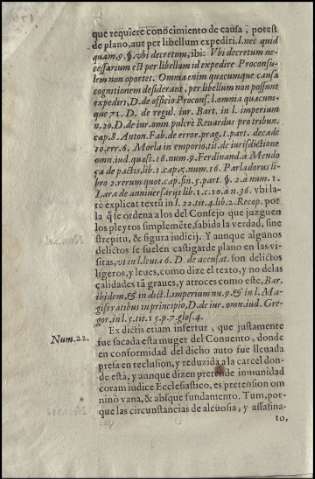 que requiere conocimiento de causa, potest
de plano, aut per libellum expediri. l. nec quid
quam. 9. §. vbi decretum, ibi: Vbi decretum ne-
cessarium est per libellum id expedire Proconsu-
lem non oportet. Omnia enim quacumque causa
cognitionem desiderant, per libellum non possunt
expediri, D. de officio Proconf. l. omnia quacum-
que 71. D. de regul. iur. Bart. in l. imperium
n. 20. D. de iur. omn. pulcrè Reuardus pro tribun.
cap. 8. Anton. Fab. de error. prag. 1. part. decade
10. err. 6. Morla in emporio, tit. de iurisdictione
omn. iud. quæst. 16. num. 9. Ferdinand. à Mendo
ça de pactis, lib. 2. cap. 5. num. 16. Parladorus lib.
libro 2. rerum quot. cap. fin. 5. part. §. 2. à num. 1.
Lara de anniuersarijs lib. 1. c. 10. à n. 36. Vbi la-
tè explicat textũ in l. 22. tit. 4. lib. 2. Recop. por
la q̃ se ordena a los del Consejo que juzguen
los pleytos simplemẽte, sabida la verdad, sine
strepitu, & figura iudicij. Y aunque algunos
delictos se suelen castigar de plano en las vi-
sitas, vt in l. leuia 6. D. de accusat. son delictos
ligeros, y leues, como dize el texto, y no de las
calidades tã graues, y atroces como este, Bar.
ibidem, & in dict. l. imperium nu. 9. & in l. Ma-
gistratibus in principio, D. de iur. omn. iud. Gre-
gor. in l. 5. tit. 15. p. 7. glos. 4.
Num. 22. Ex dictis etiam infertur, que justamente
fue sacada esta muger del Conuento, donde
en conformidad del dicho auto fue lleuada
presa en reclusion, y reduzida a la carcel don-
de està, y aunque dizen pretende inmunidad
coram iudice Ecclesiastico, es pretension om
ninò vana, & absque fundamento. Tum, por-
que las circunstancias de aleuosia, y assasina-
to,